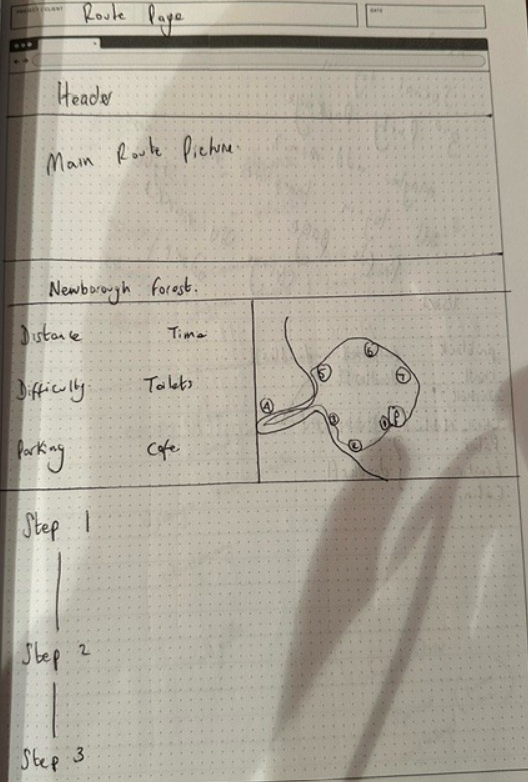 PROJECT / CLIENT Route Page DATE
Header
Main Route Picture.
Newborough Forest.
Distance Time
Difficulty Toilets
Parking Cafe
6
5 7
4
3 1 P
2
Step 1
Step 2
Step 3